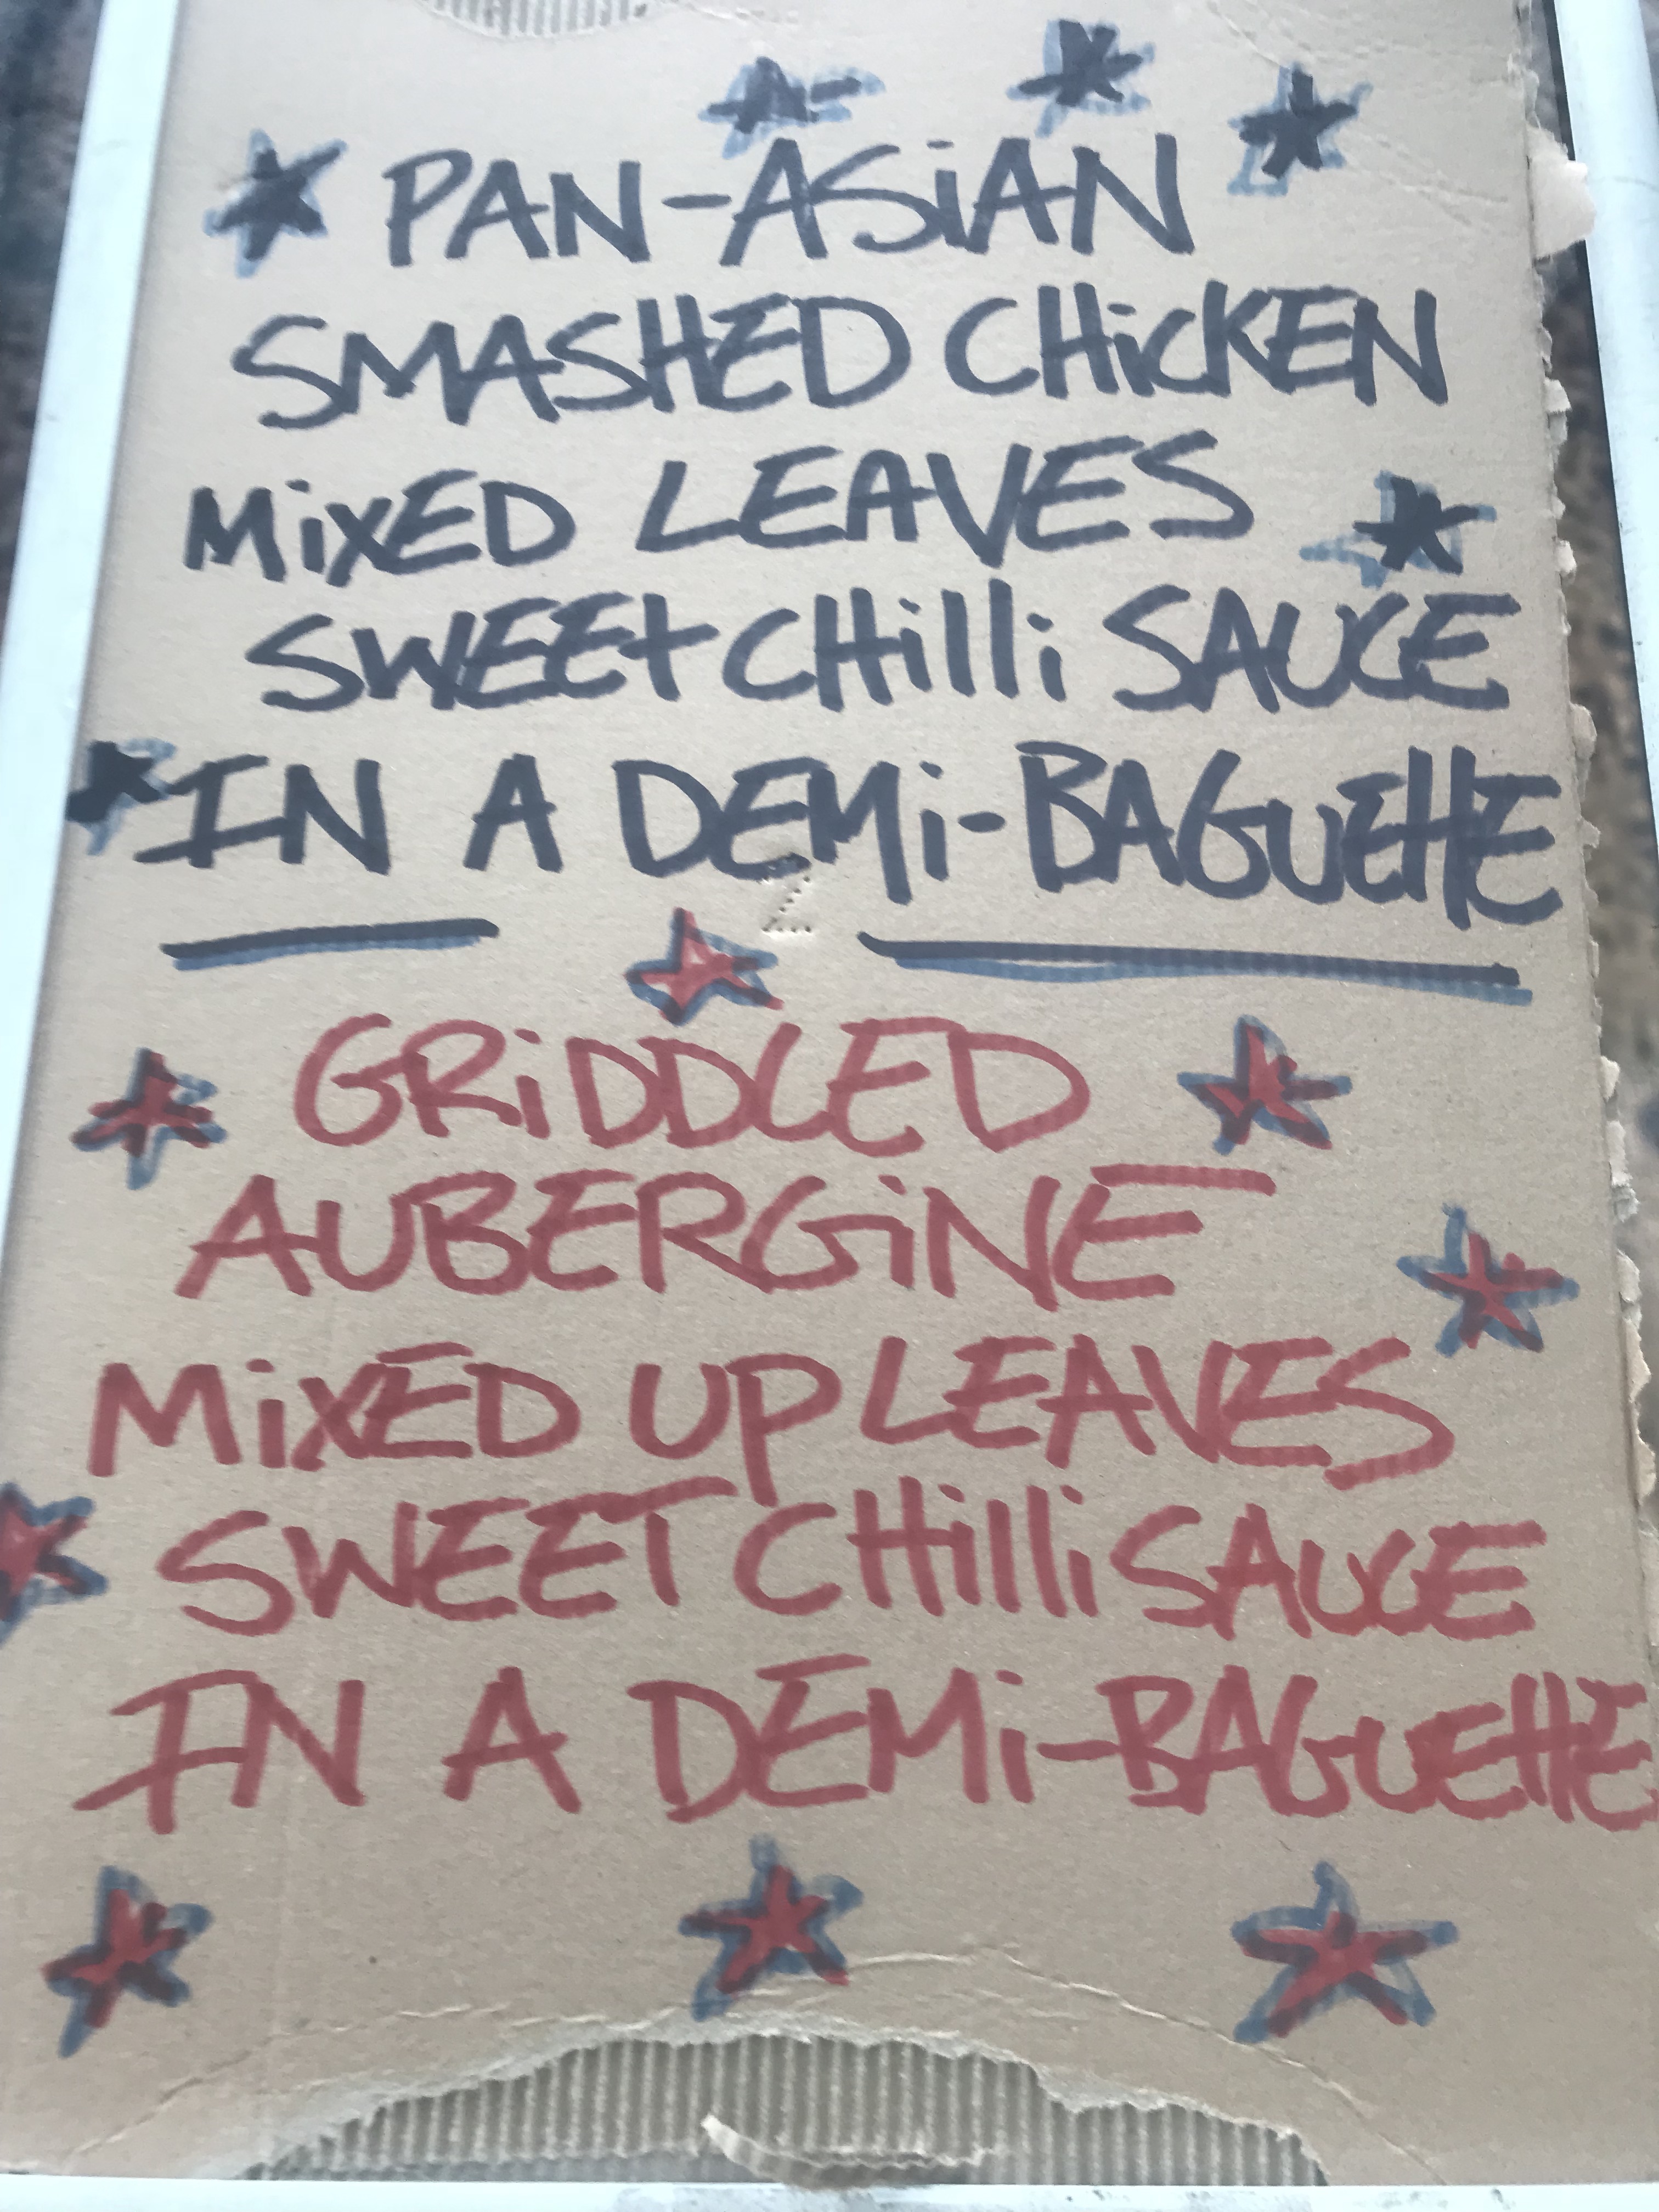 PAN-ASiAN
SMASHED CHiCKEN
MiXED LEAVES
SWEEt CHilli SAUCE
IN A DEMi-BAGUEttE
GRiDDLED
AUBERGiNE
MiXED UP LEAVES
SWEET CHilli SAUCE
IN A DEMi-BAGUEttE